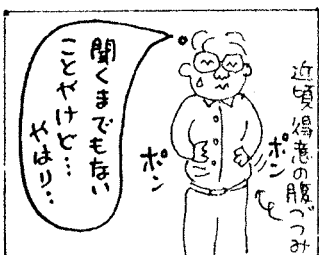 近頃得意の腹づつみ
ポン
ポン
聞くまでもない
ことやけど…
やはり‥